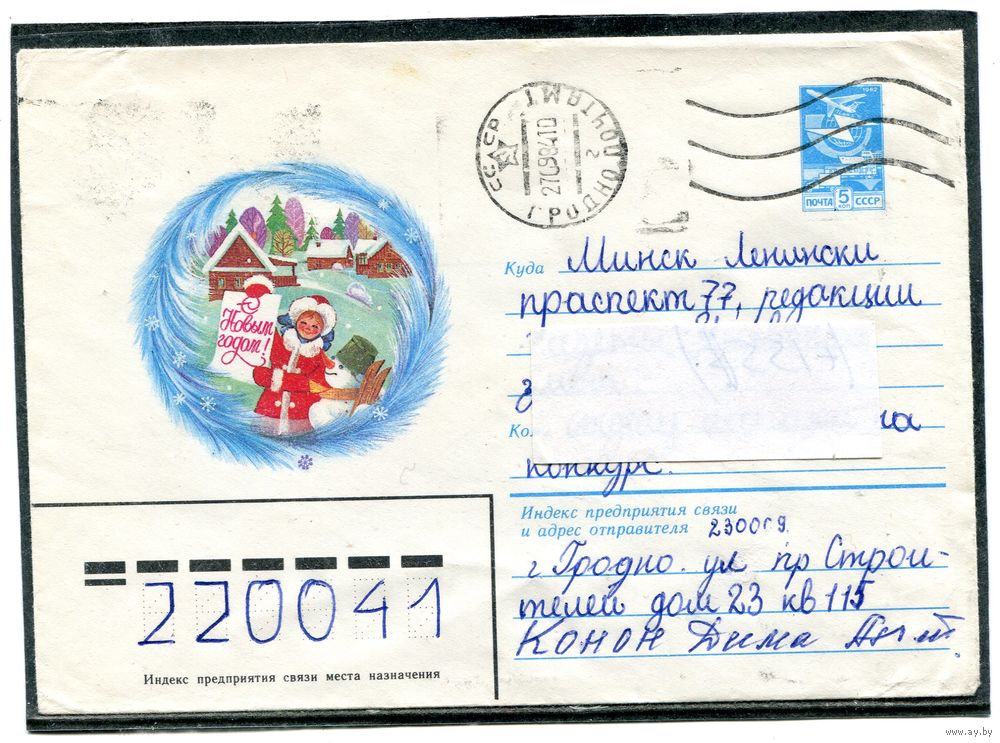 1982
ПОЧТА 5 КОП СССР
СССР
ПОЧТАМТ
270984 10
2
С
Новым
годом!
Куда Минск Ленински
праспект 77, редакции
на
конкурс.
Индекс предприятия связи
и адрес отправителя 230009
г Гродно. ул пр Строи-
телей дом 23 кв 115
Конон Дима
220041
Индекс предприятия связи места назначения
www.ay.by